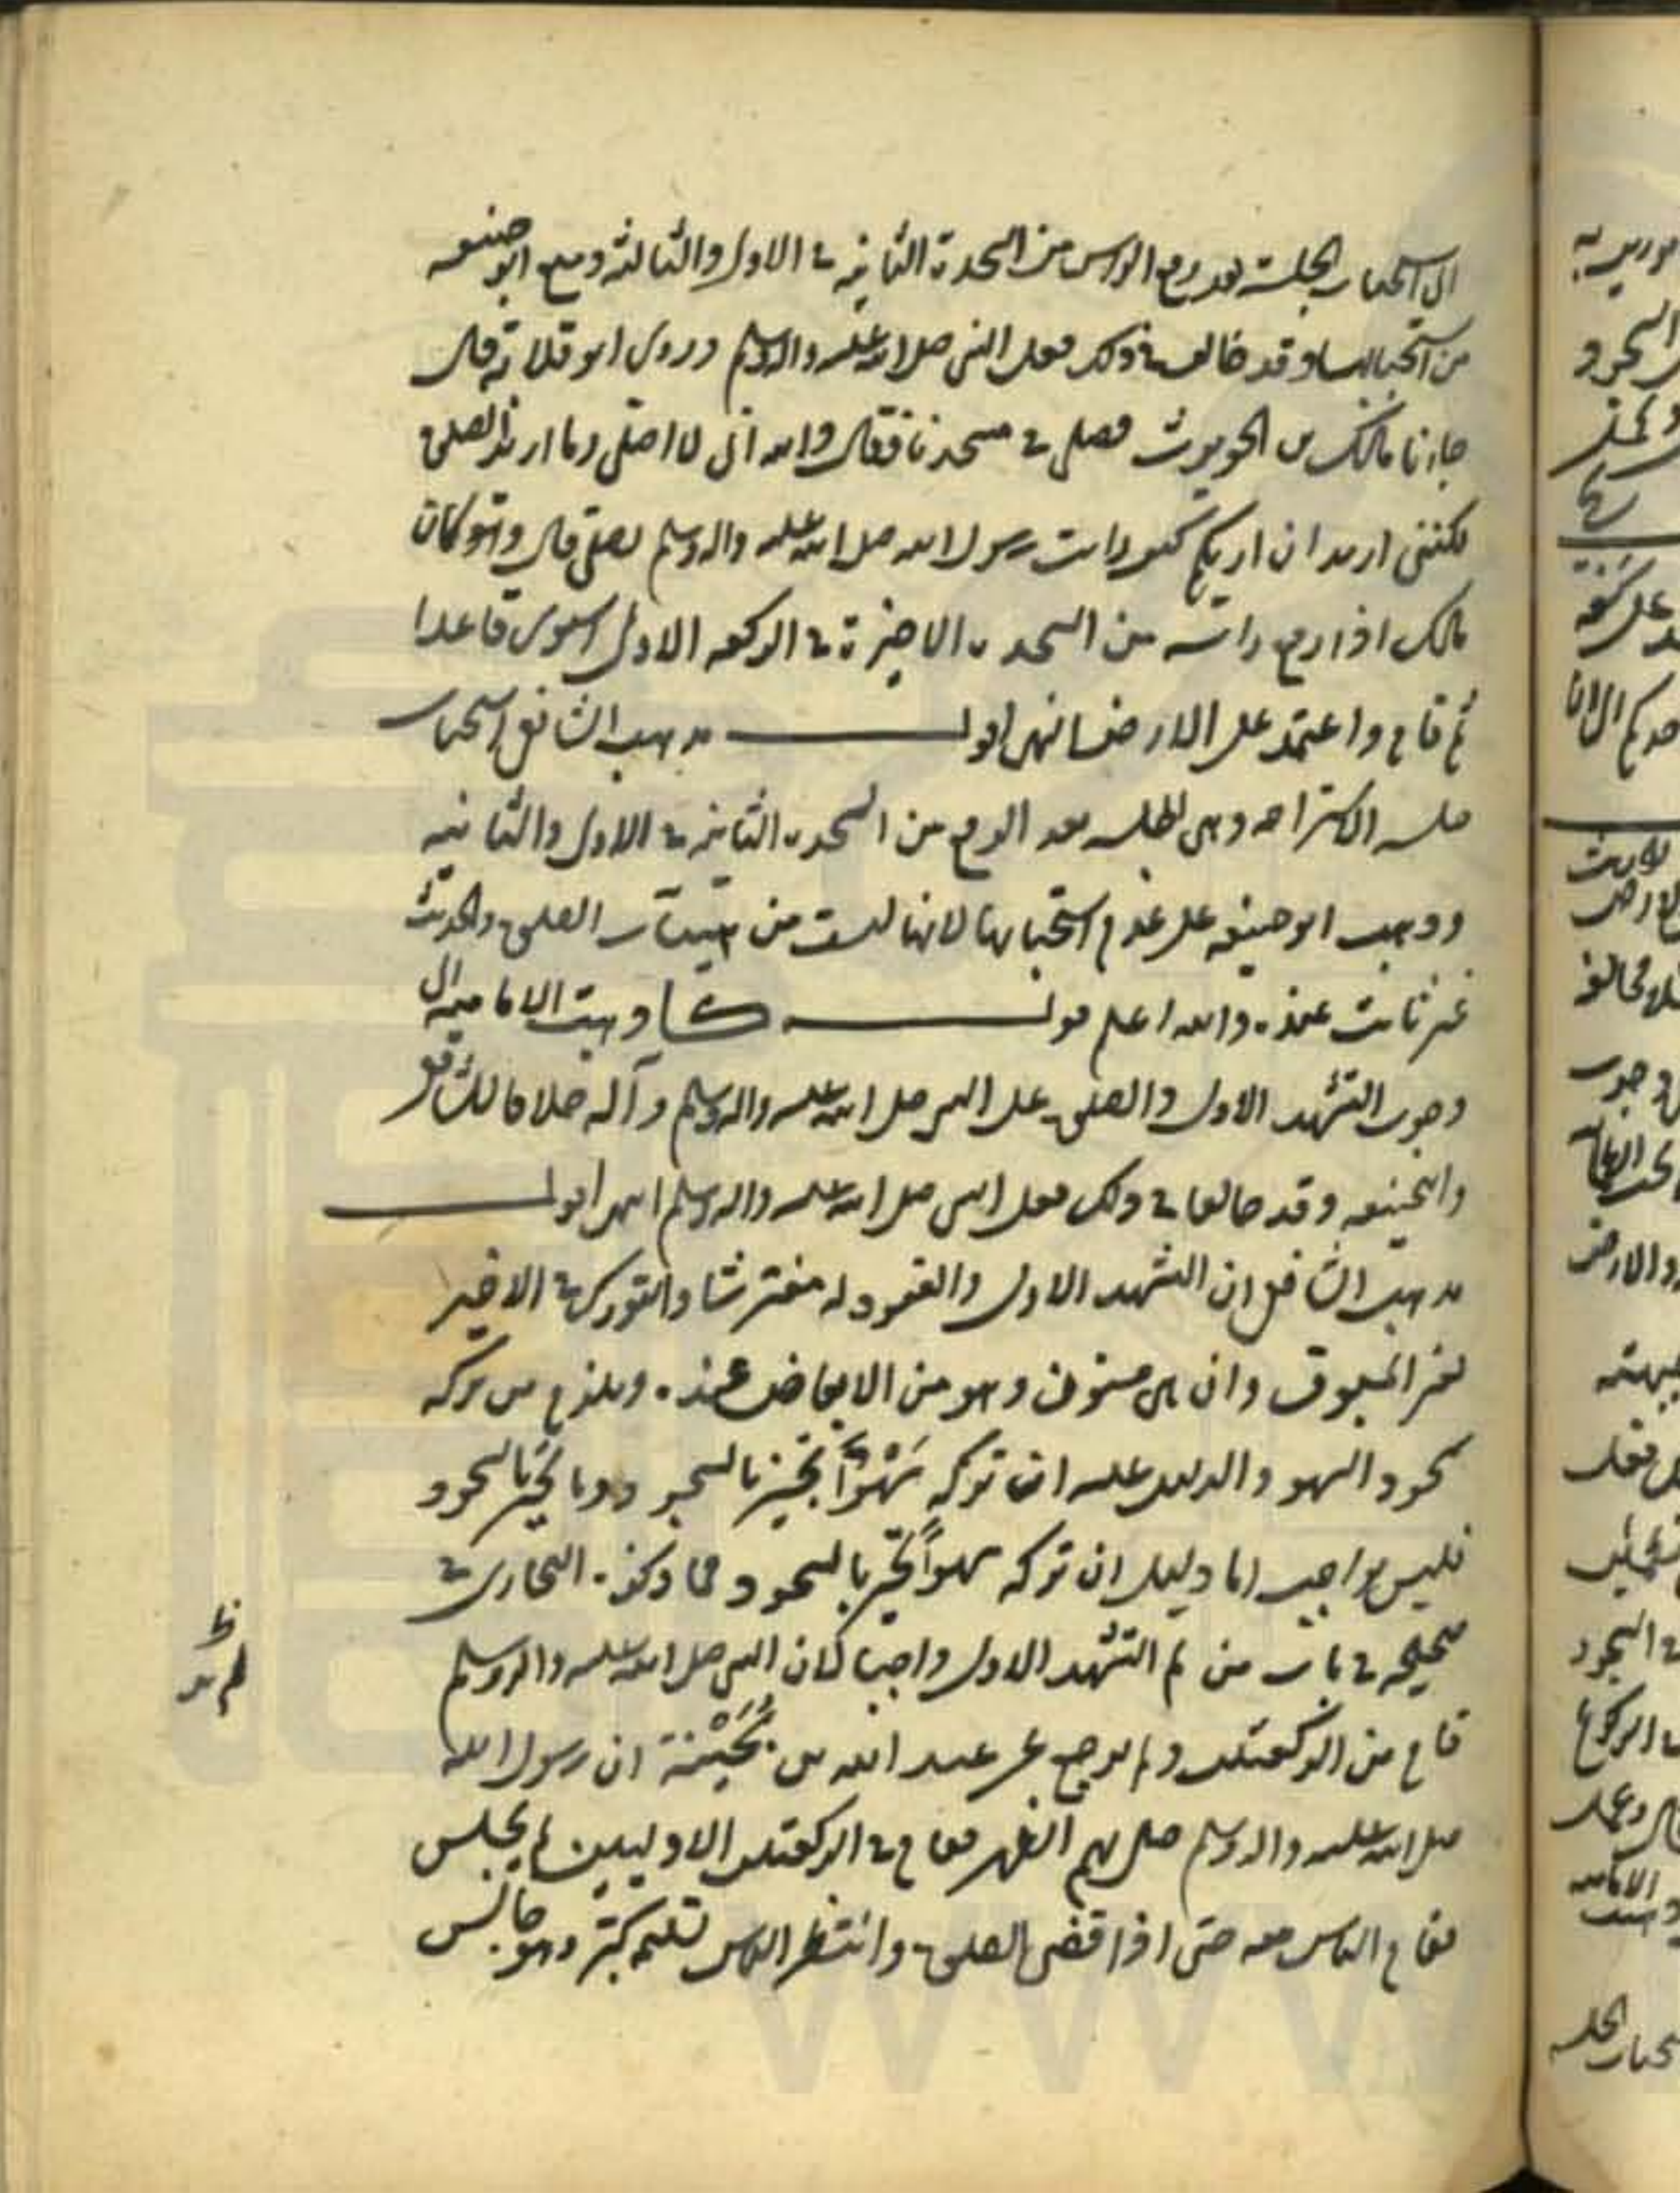 الى استحباب الجلسة بعد رفع الراس من السجدة الثانية فى الاولى والثالثة ومنع ابو حنيفه
من استحبابها وقد خالف فى ذلك فعل النبى صلى الله عليه واله وسلم وروى ابو قلابة قال
جاءنا مالك بن الحويرث فصلى فى مسجدنا فقال والله انى لا اصلى وما اريد الصلوة
لكننى اريد ان اريكم كيف رايت رسول الله صلى الله عليه واله وسلم يصلى قال وهو كان
مالك اذا رفع راسه من السجدة الاخيرة فى الركعه الاولى استوى قاعدا
ثم قام واعتمد على الارض انتهى اقول مذهب الشافعى استحباب
جلسه الاستراحه وهى الجلسه بعد الرفع من السجدة الثانيه فى الاولى والثانيه
وذهب ابو حنيفه على عدم استحبابها لانها ليست من هيئات الصلوة والحديث
غير ثابت عنده والله اعلم قوله كا ذهبت الاماميه الى
وجوب التشهد الاول والصلوة على النبى صلى الله عليه واله وسلم وآله خلافا للشافعى
والحنيفه وقد خالفا فى ذلك فعل النبى صلى الله عليه واله وسلم انتهى اقول
مذهب الشافعى ان التشهد الاول والقعود له مفترشا والتورك فى الاخير
لغير المسبوق وان هى مسنون وهو من الابعاض عنده ويلزم من تركه
سجود السهو والدليل عليه ان تركه سَهْواً يجبر بالسجود وما يجبر بالسجود
فليس بواجب اما دليل ان تركه سهواً يجبر بالسجود فما ذكره البخارى فى
صحيحه فى باب من لم التشهد الاول واجبا لان النبى صلى الله عليه واله وسلم
قام من الركعتين ولم يرجع عن عبد الله بن بُحَيْنة ان رسول الله
صلى الله عليه واله وسلم صلى بهم الظهر فقام فى الركعتين الاوليين لم يجلس
فقام الناس معه حتى اذا قضى الصلوة وانتظر الناس تسليمه كبّر وهو جالس